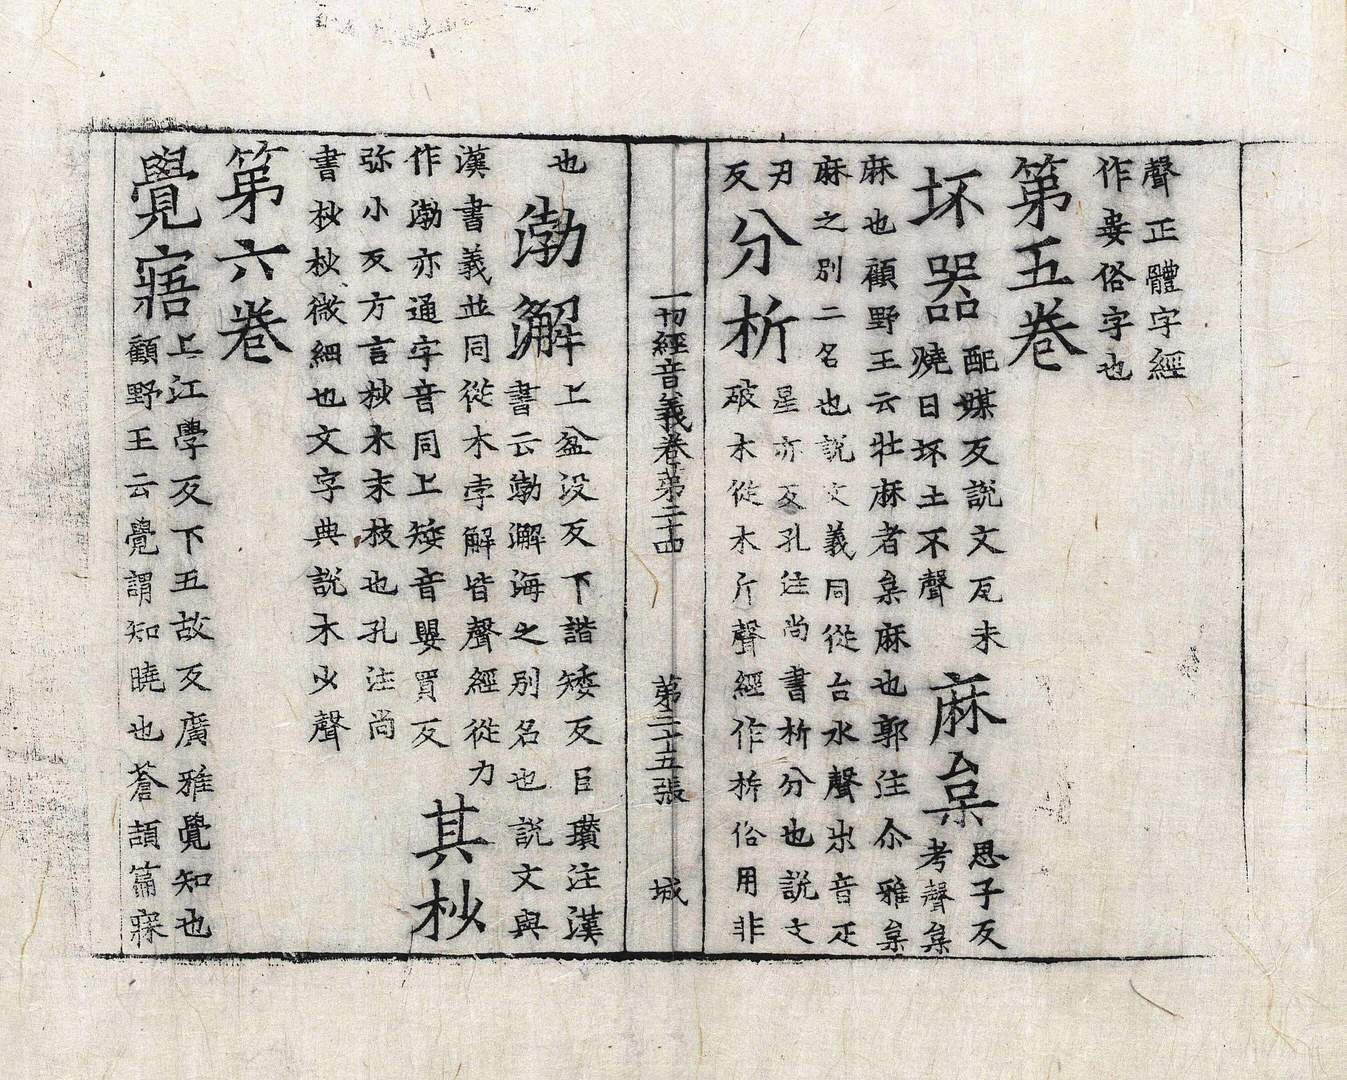 聲正體字經
作妾俗字也
第五卷
坏器
配媒反說文瓦未
燒曰坏土不聲
麻枲
思子反
考聲枲
麻也顧野王云牡麻者枲麻也郭注尒雅枲
麻之別二名也說文義同從台水聲出音疋
刃反
分析
星亦反孔注尚書析分也說文
破木從木斤聲經作㭊俗用非
也
渤澥
上盆没反下諧矮反臣瓚注漢
書云渤澥海之別名也說文與
漢書義並同從水孛解皆聲經從力
作渤亦通字音同上矮音嬰買反
其杪
弥小反方言杪木末枝也孔注尚
書杪杪微細也文字典說木少聲
第六卷
覺寤
上江學反下五故反廣雅覺知也
顧野王云覺謂知曉也蒼頡篇寐
一切經音義卷第二十四 第二十五張 城